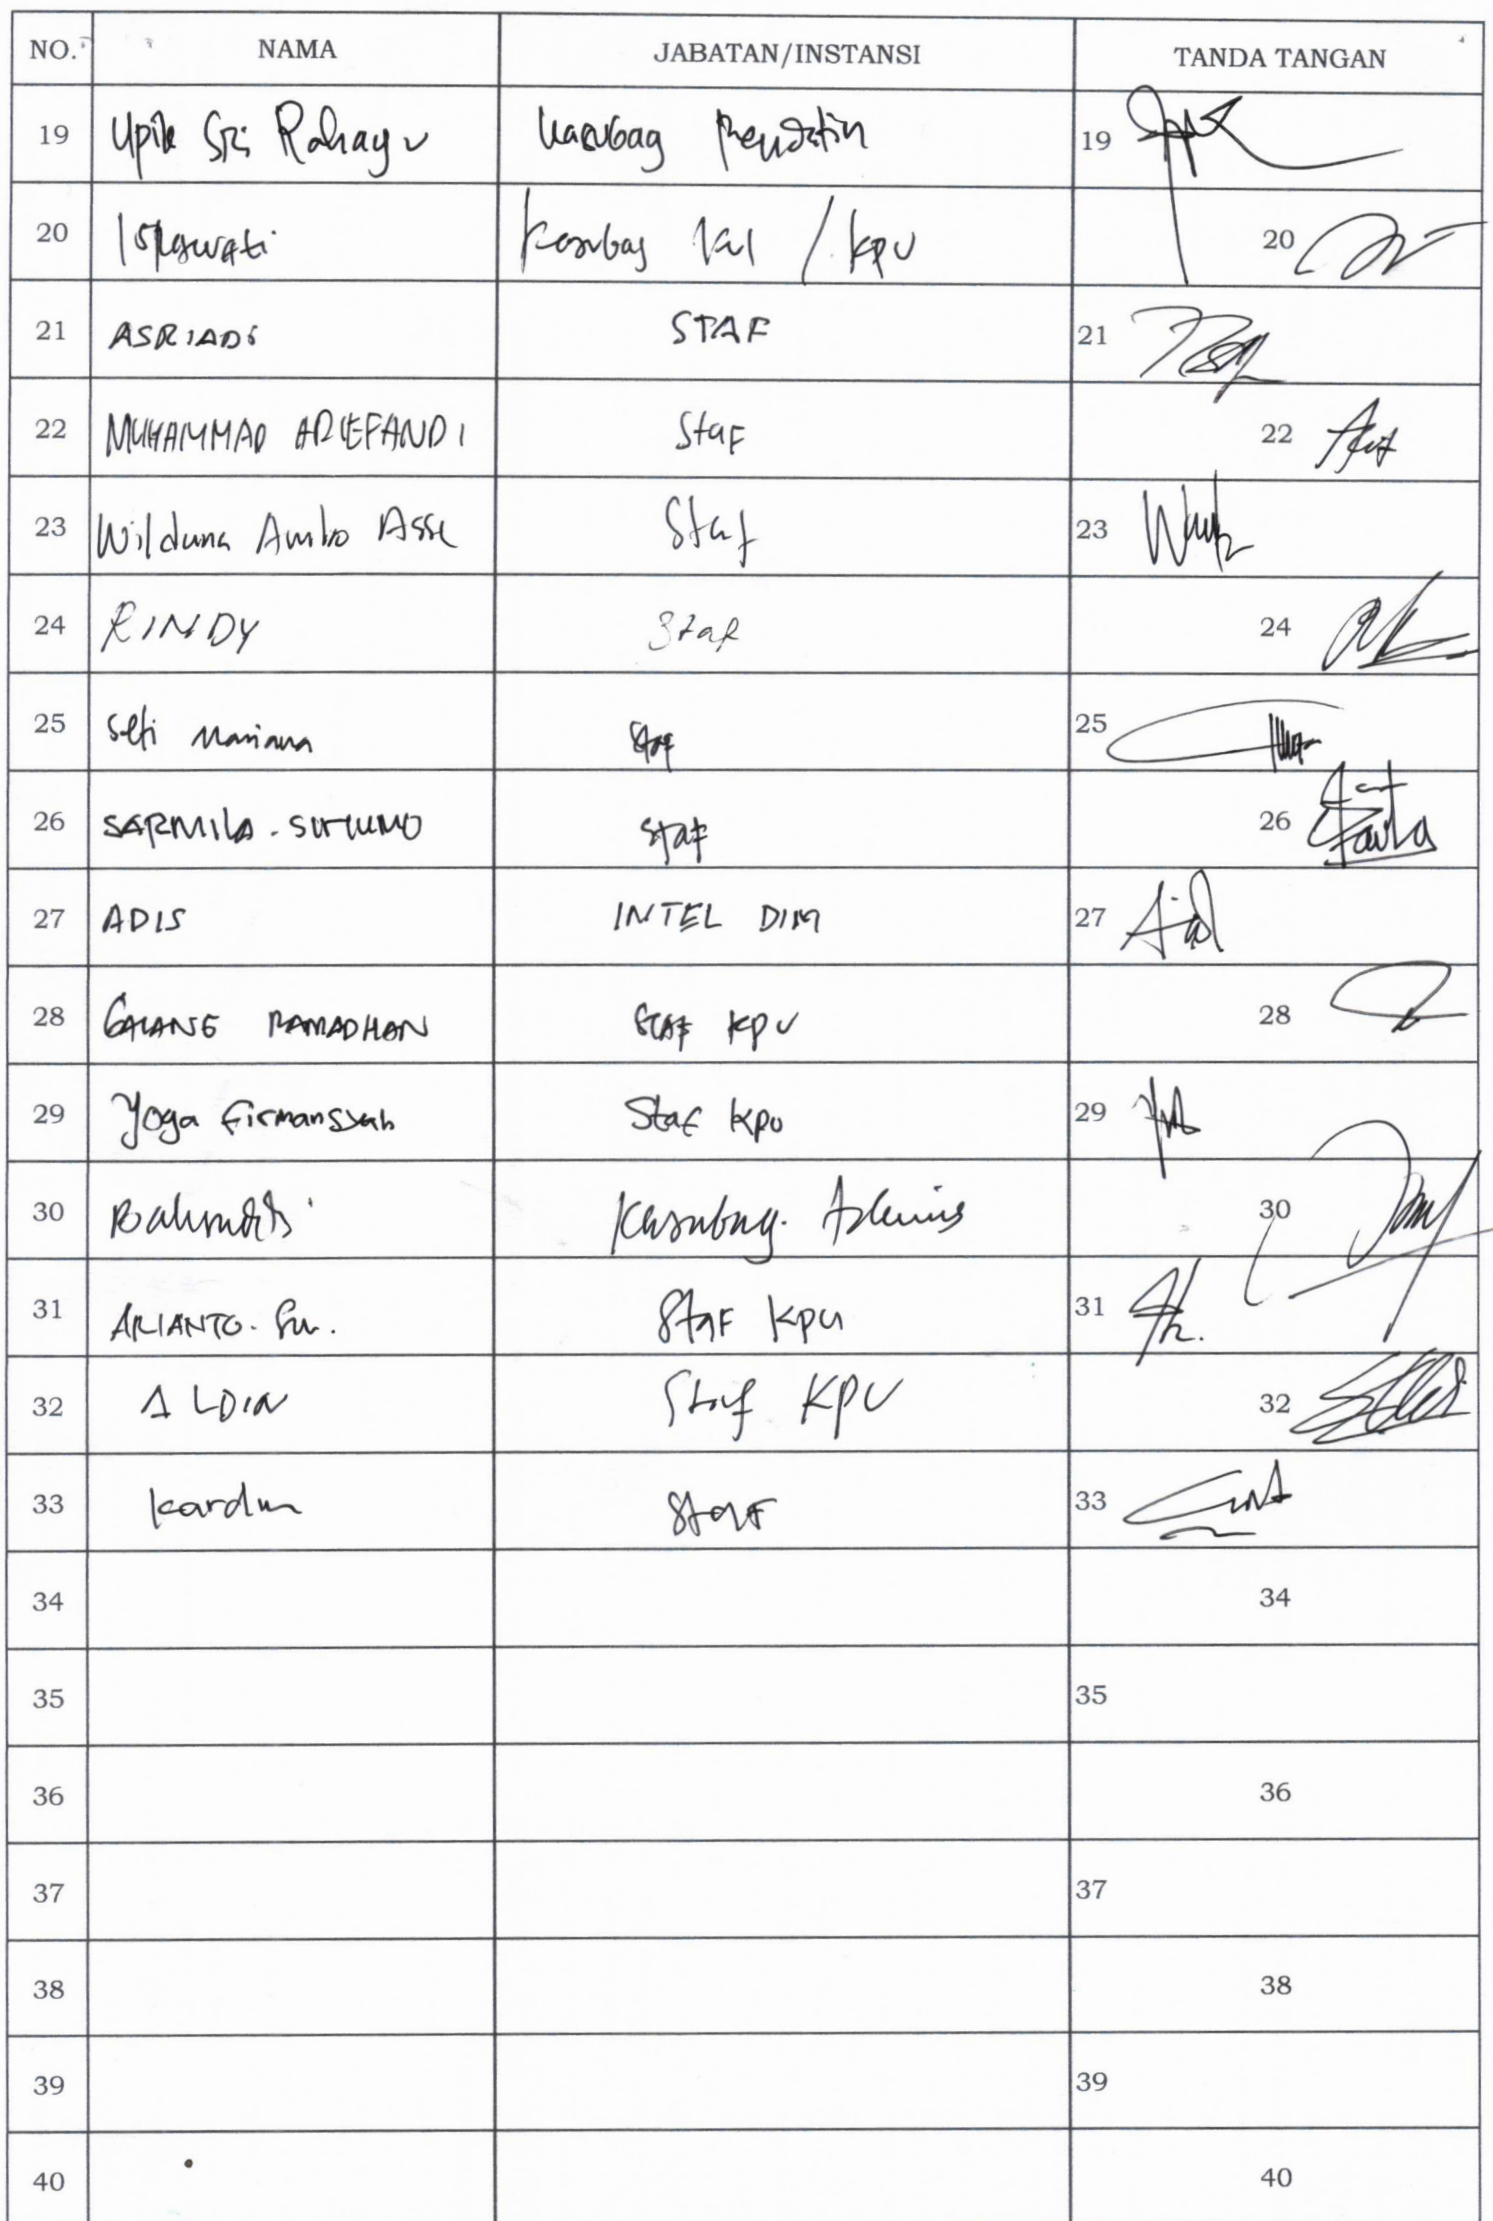 NO. NAMA JABATAN/INSTANSI TANDA TANGAN
19 Upik Sri Rahayu Kasubag Rendatin 19
20 Kasubag Kul / KPU 20
21 ASRIADI STAF 21
22 MUHAMMAD ARIEFANDI Staf 22
23 Wilduna Ambo Asse Staf 23
24 RINDY Staf 24
25 Selfi Mariana Staf 25
26 SARMILA . Staf 26
27 ADIS INTEL DIM 27
28 GALANG RAMADHAN STAF KPU 28
29 Yoga Firmansyah Staf KPU 29
30 Kasubag. 30
31 ARIANTO. Staf KPU 31
32 ALDIN Staf KPU 32
33 Kardin Staf 33
34 34
35 35
36 36
37 37
38 38
39 39
40 40